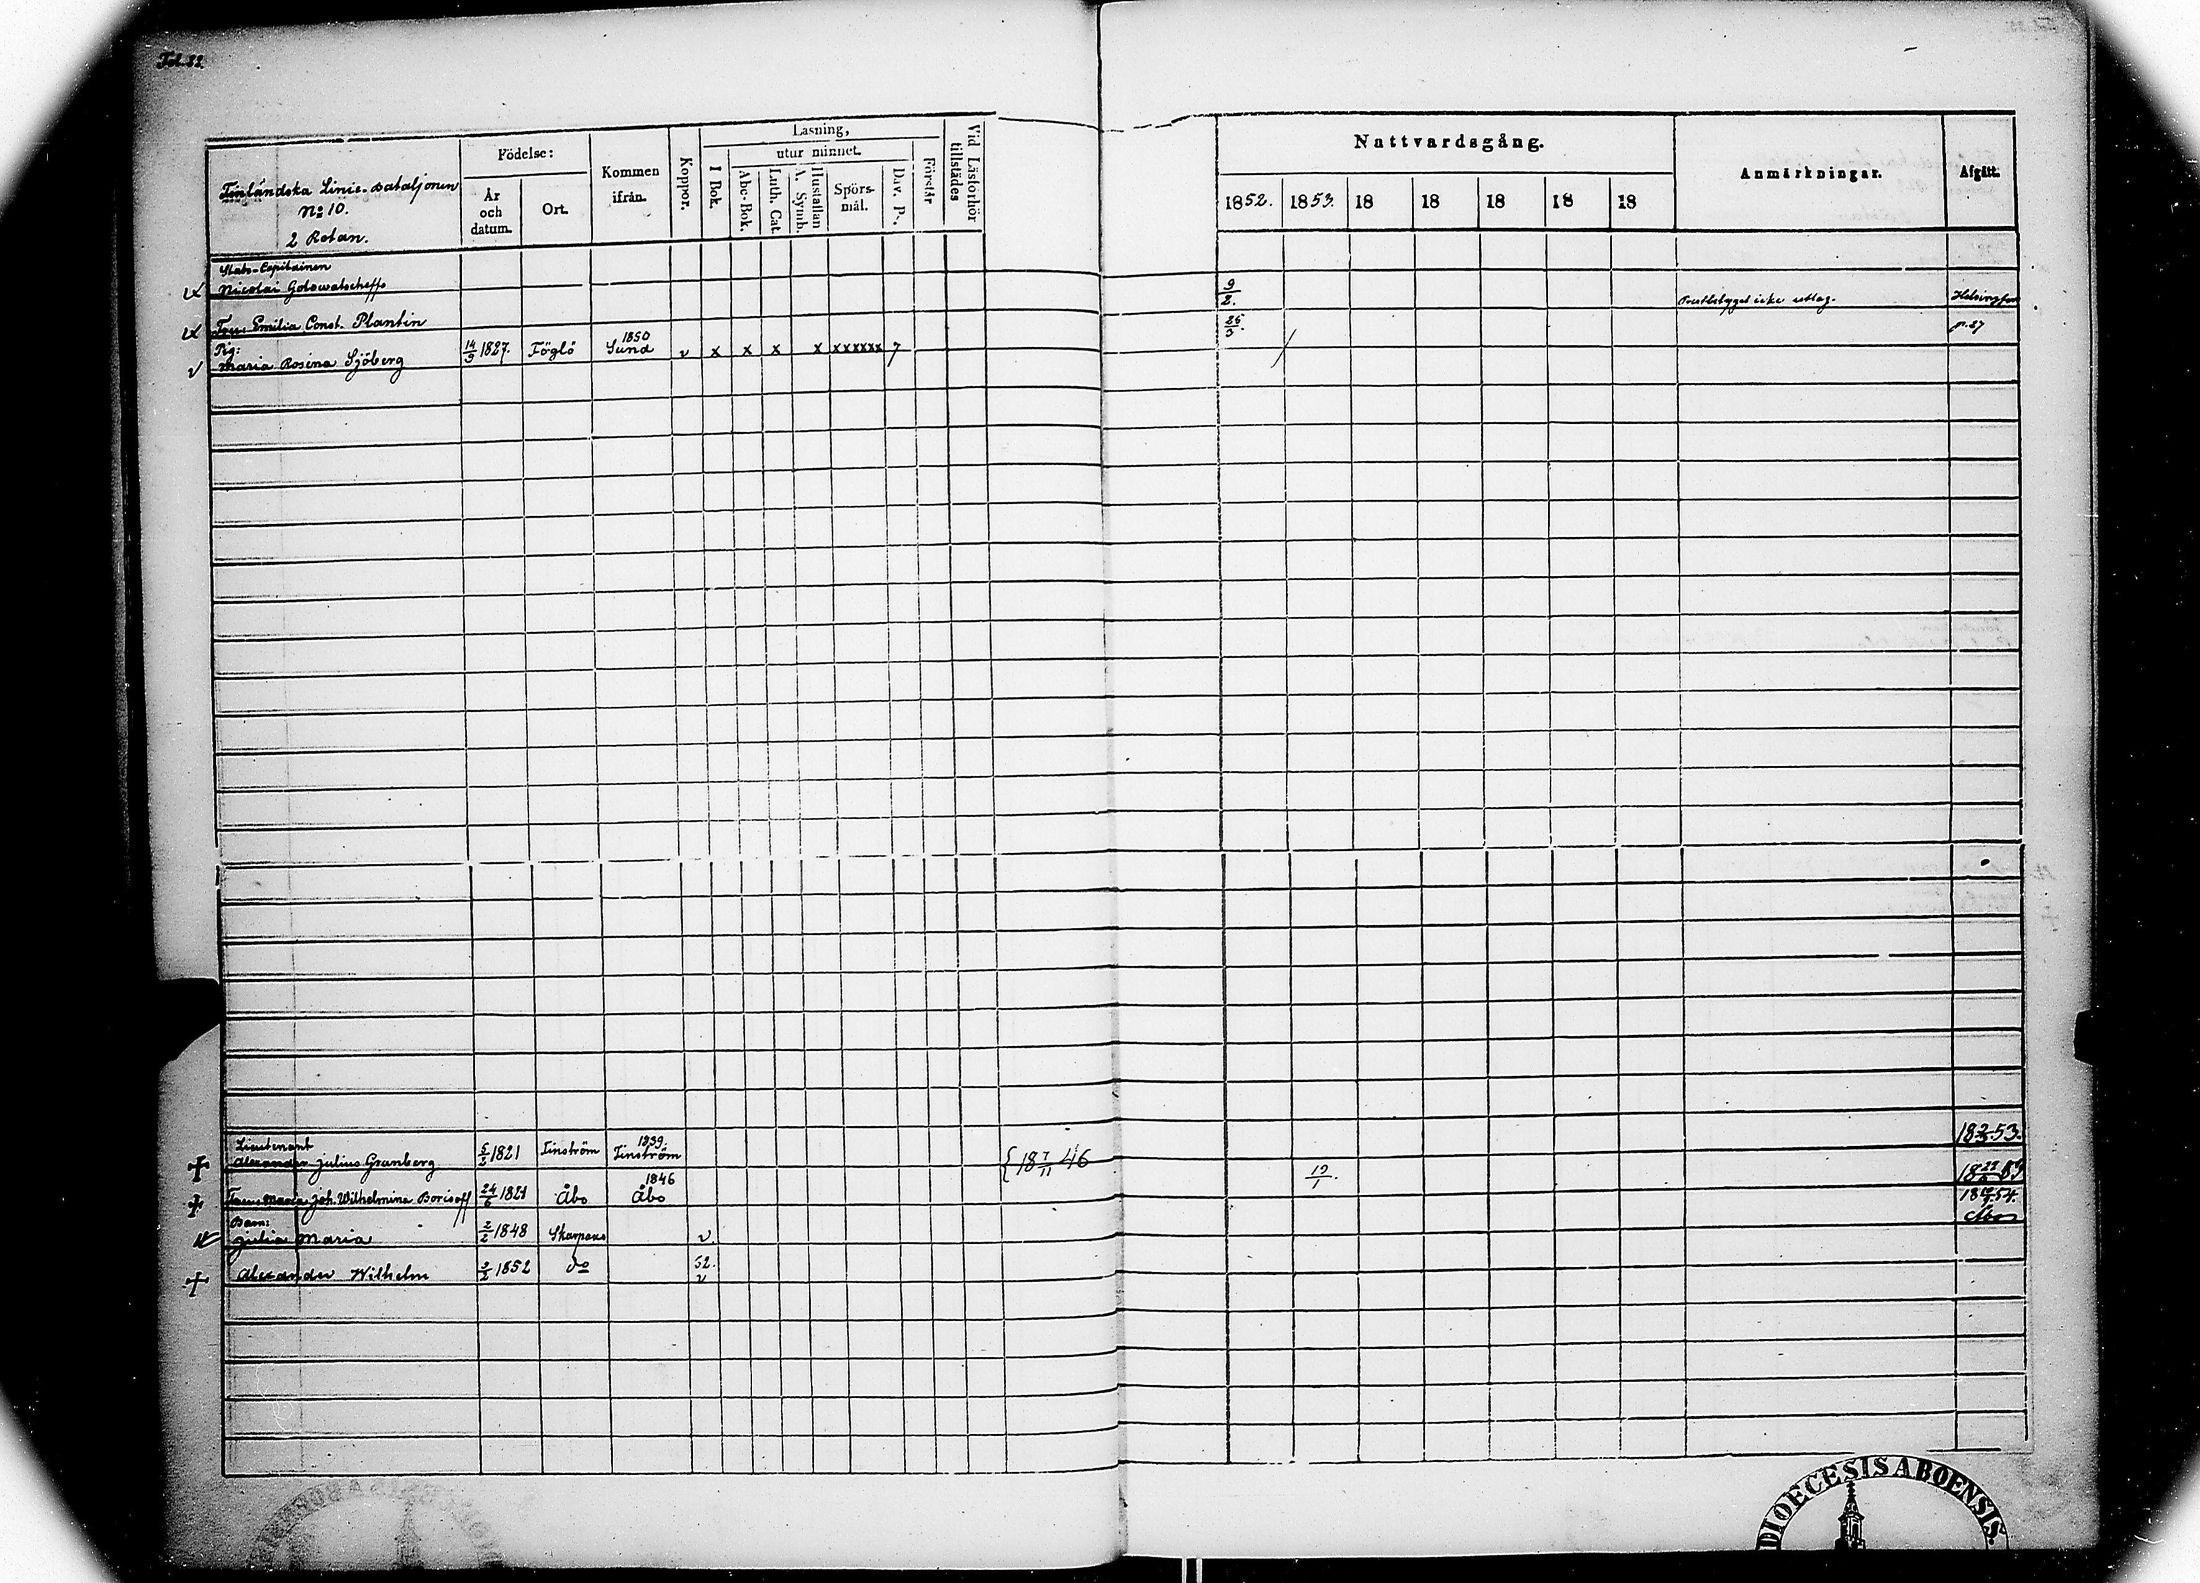 Fol. 22.
Finländska Linie-Bataljonen
No 10.
2 Rotan.
Födelse:
År
och
datum.
Ort.
Kommen
ifrån.
Koppor.
Läsning,
utur minnet.
I Bok.
Abc-Bok.
Luth. Cat.
A. Symb.
Hustaflan
Spörs-
mål.
Dav. Ps.
Förstår
Vid Läsförhör
tillstädes
Nattvardsgång.
1852. 1853. 18 18 18 18 18
Anmärkningar.
Afgått.
Stabs-Capitainen
Nicolai
9/2.
Prestbetyget icke uttag. Helsingfors
Fru: Emilia Const. Plantin
25/3.
p. 27
Pig:
Maria Rosina Sjöberg 14/9 1827. Föglö 1850 Sund v x x x x xxxxxx 7
Lieutenant
Alexander Julius Granberg 5/2 1821 Finström 1839. Finström
{18 7/11 46
Fru: Maria Joh. Wilhelmina Borisoff 24/6 1821 Åbo 1846 Åbo
19/1.
Barn:
Julia Maria 2/2 1848 Skarpans v.
Alexander Wilhelm 3/2 1852 do 52. v
DIOECESIS ABOENSIS.